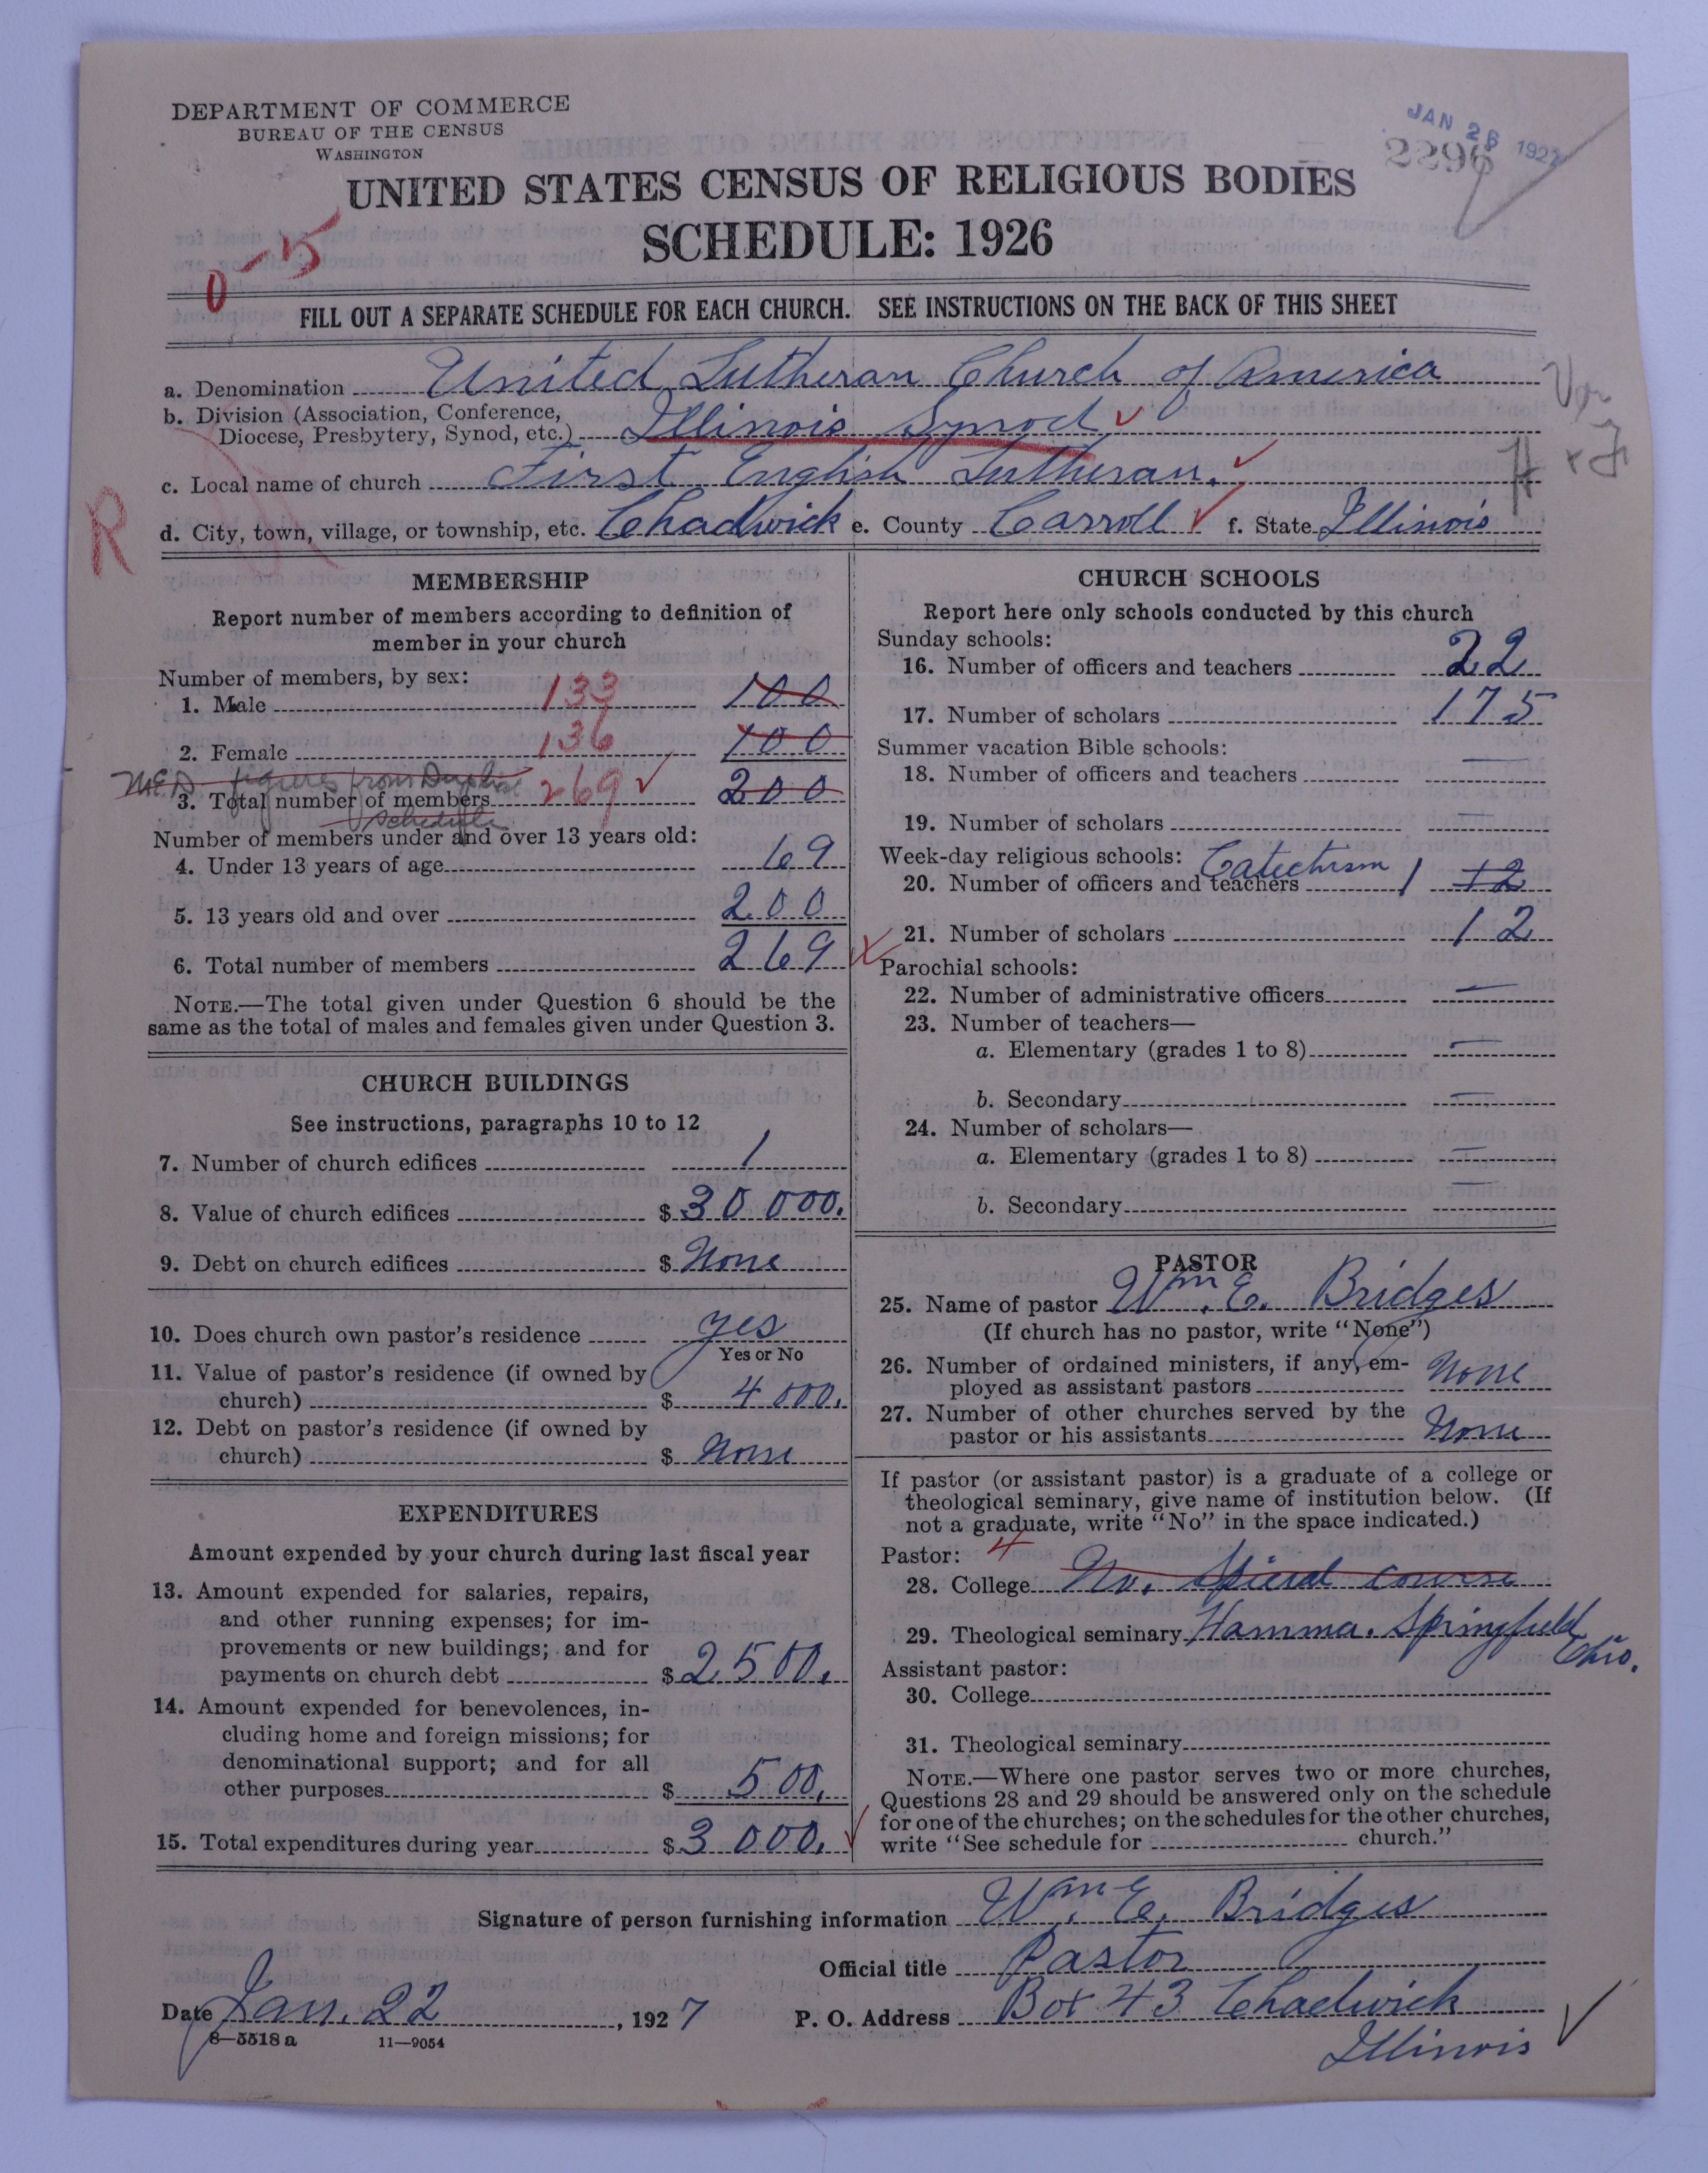 DEPARTMENT OF COMMERCE
BUREAU OF THE CENSUS
WASHINGTON
JAN 26 1927
2296
UNITED STATES CENSUS OF RELIGIOUS BODIES
SCHEDULE: 1926
0-15
FILL OUT A SEPARATE SCHEDULE FOR EACH CHURCH. SEE INSTRUCTIONS ON THE BACK OF THIS SHEET
a. Denomination United Lutheran Church of America
b. Division (Association, Conference,
Diocese, Presbytery, Synod, etc.) Illinois Synod ✓
c. Local name of church First English Lutheran. ✓
R
d. City, town, village, or township, etc. Chadwick e. County Carroll ✓ f. State Illinois
MEMBERSHIP
Report number of members according to definition of
member in your church
Number of members, by sex:
1. Male 133 100
2. Female 136 100
figures from
3. Total number of members 269 ✓ 200
schedule
Number of members under and over 13 years old:
4. Under 13 years of age 69
5. 13 years old and over 200
6. Total number of members 269 ✓
NOTE.—The total given under Question 6 should be the
same as the total of males and females given under Question 3.
CHURCH BUILDINGS
See instructions, paragraphs 10 to 12
7. Number of church edifices 1
8. Value of church edifices $ 30 000.
9. Debt on church edifices $ None
10. Does church own pastor's residence yes
Yes or No
11. Value of pastor's residence (if owned by
church) $ 4 000.
12. Debt on pastor's residence (if owned by
church) $ None
EXPENDITURES
Amount expended by your church during last fiscal year
13. Amount expended for salaries, repairs,
and other running expenses; for im-
provements or new buildings; and for
payments on church debt $ 2500.
14. Amount expended for benevolences, in-
cluding home and foreign missions; for
denominational support; and for all
other purposes $ 500.
15. Total expenditures during year $ 3 000. ✓
CHURCH SCHOOLS
Report here only schools conducted by this church
Sunday schools:
16. Number of officers and teachers 22
17. Number of scholars 175
Summer vacation Bible schools:
18. Number of officers and teachers —
19. Number of scholars —
Week-day religious schools: Catechism
20. Number of officers and teachers 1 12
21. Number of scholars 12
Parochial schools:
22. Number of administrative officers —
23. Number of teachers—
a. Elementary (grades 1 to 8) —
b. Secondary —
24. Number of scholars—
a. Elementary (grades 1 to 8) —
b. Secondary —
PASTOR
25. Name of pastor Wm. E. Bridges
(If church has no pastor, write "None")
26. Number of ordained ministers, if any, em-
ployed as assistant pastors None
27. Number of other churches served by the
pastor or his assistants None
If pastor (or assistant pastor) is a graduate of a college or
theological seminary, give name of institution below. (If
not a graduate, write "No" in the space indicated.)
Pastor: 4
28. College No. Special course
29. Theological seminary Hamma. Springfield
Ohio.
Assistant pastor:
30. College
31. Theological seminary
NOTE.—Where one pastor serves two or more churches,
Questions 28 and 29 should be answered only on the schedule
for one of the churches; on the schedules for the other churches,
write "See schedule for church."
Signature of person furnishing information Wm. E. Bridges
Official title Pastor
Date Jan. 22, 1927 P. O. Address Box 43 Chadwick
Illinois ✓
8—5518a 11—9054